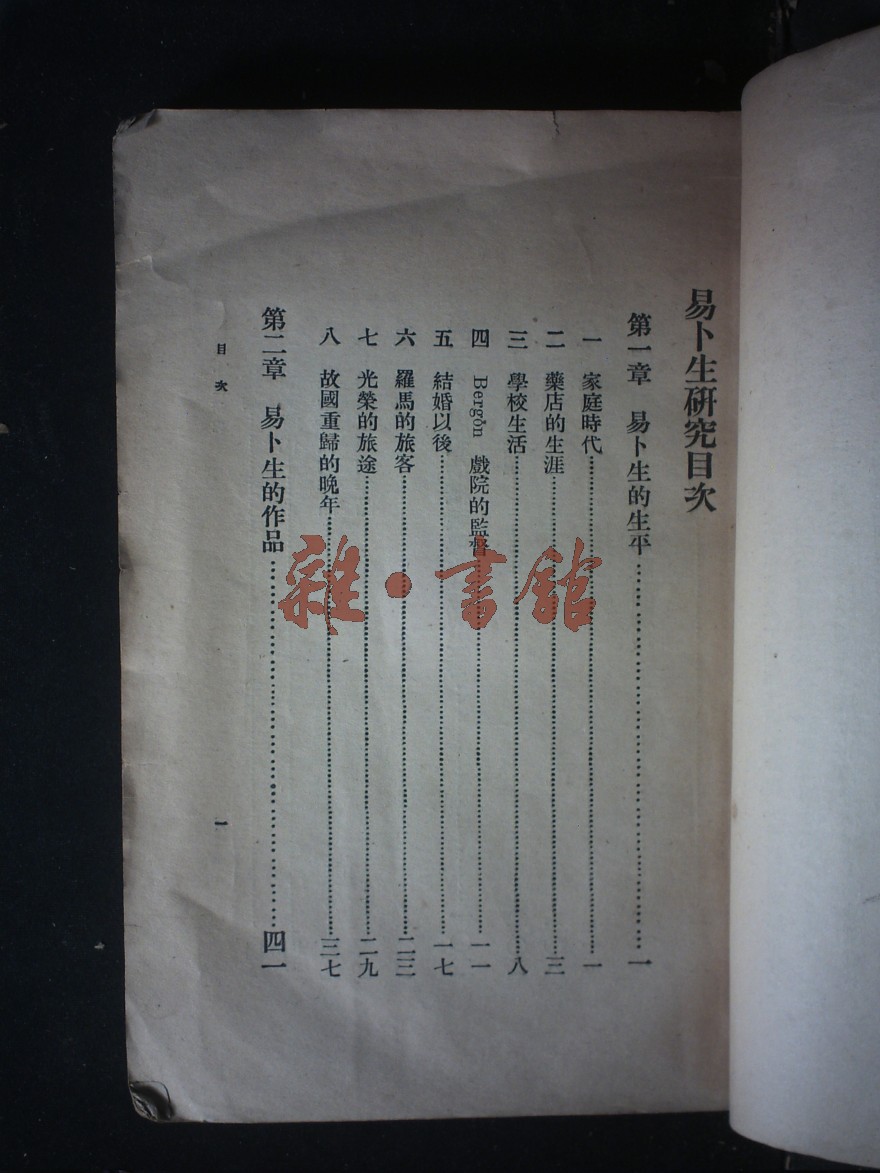 易卜生研究目次
第一章 易卜生的生平……一
一 家庭時代……一
二 藥店的生涯……三
三 學校生活……八
四 Bergön 戲院的監督……一一
五 結婚以後……一七
六 羅馬的旅客……二三
七 光榮的旅途……二九
八 故國重歸的晚年……三七
第二章 易卜生的作品……四一
目次
一
雜·書館